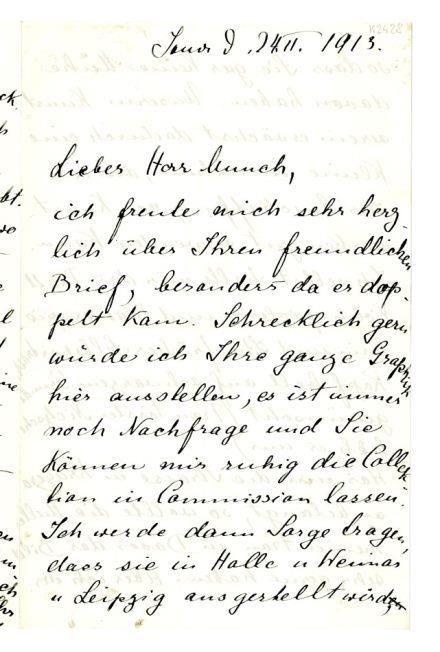 K2428
Jena d. 24 II. 1913.
Lieber Herr Munch,
ich freue mich sehr herz-
lich über Ihren freundlichen
Brief, besonders da er dop-
pelt kam. Schrecklich gern
würde ich Ihre ganze Graphik
hier ausstellen, es ist immer
noch Nachfrage und Sie
können mir ruhig die Collek
tion in Commission lassen.
Ich werde dann Sorge tragen,
dass sie in Halle u Weimar
u Leipzig ausgestellt wird,